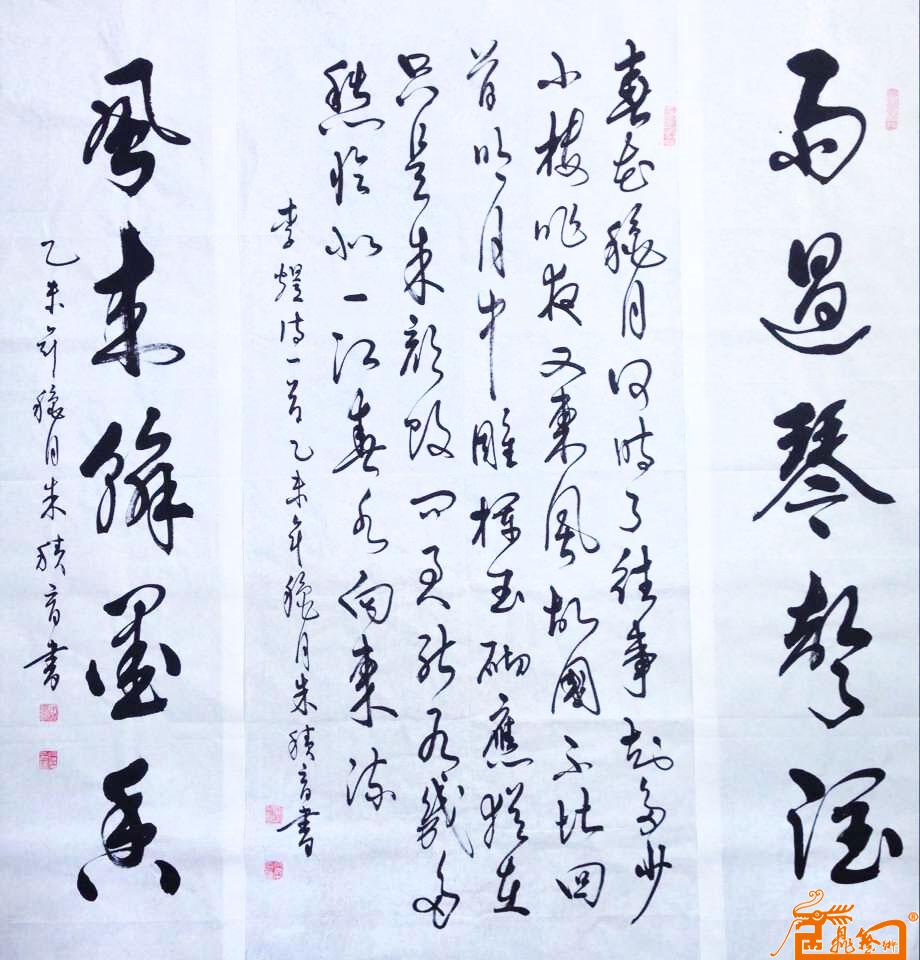 雨過琴聲潤
春花秋月何時了往事知多少
小樓昨夜又東風故國不堪回
首明月中雕欄玉砌應猶在
只是朱顏改問君能有幾多
愁恰似一江春水向東流
李煜詩一首乙未年秋月朱積音書
風來翰墨香
乙未年秋月朱積音書